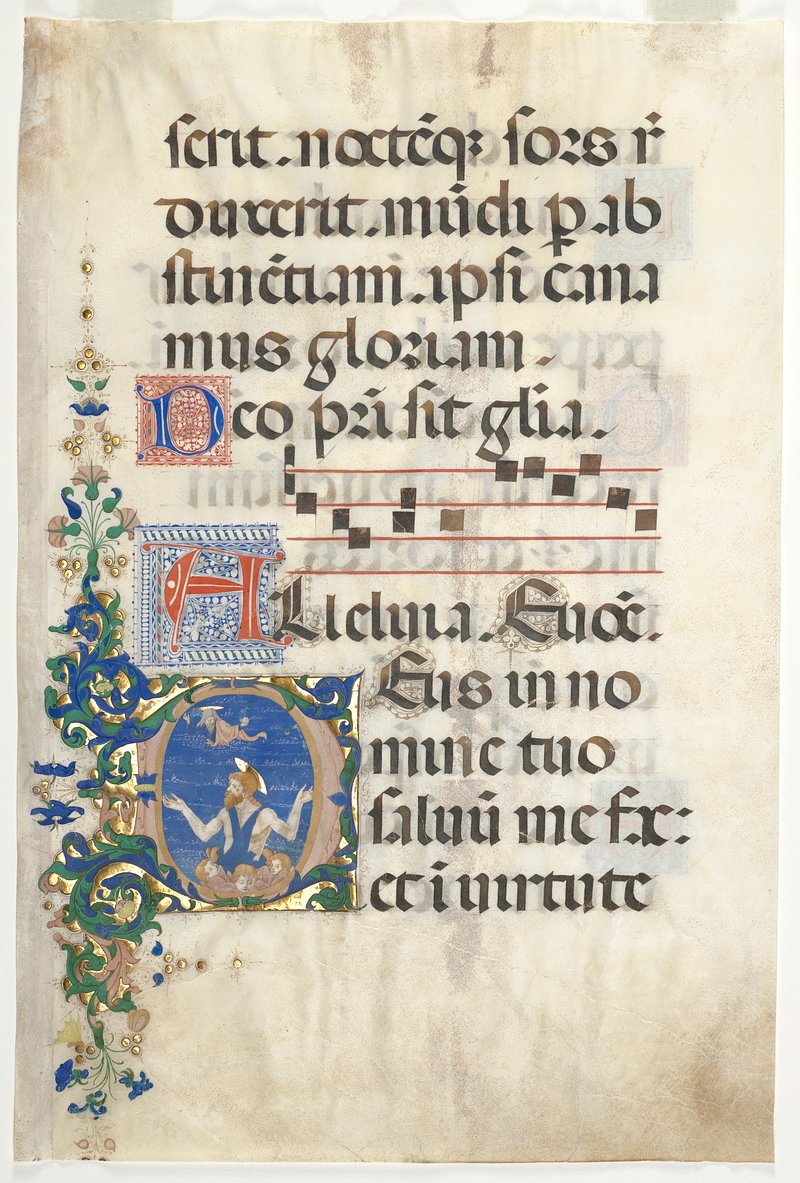 serit. noctēq; sors r̄
duxerit. mūdi ꝑ ab
stinētiam. ipsi cana
mus gloriam.
Deo pr̄i sit gl̄ia.
Alleluia. Euoē.
Deus in no
mine tuo
saluū me fac:
et ī uirtute